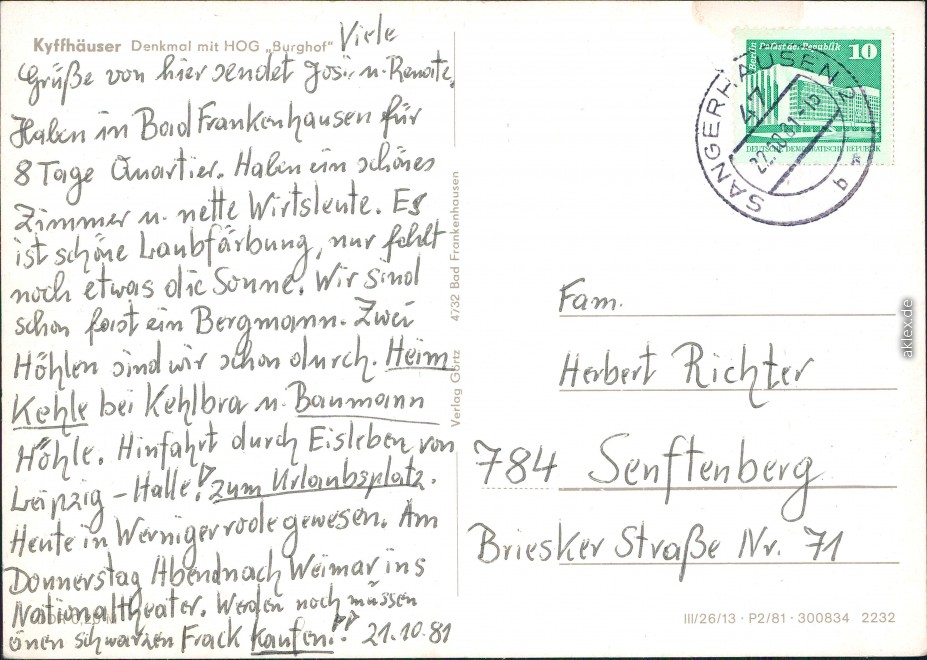 Kyffhäuser Denkmal mit HOG „Burghof"
Viele
Grüße von hier sendet Josi u. Renate.
Haben in Bad Frankenhausen für
8 Tage Quartier. Haben ein schönes
Zimmer u. nette Wirtsleute. Es
ist schöne Laubfärbung, nur fehlt
noch etwas die Sonne. Wir sind
schon fast ein Bergmann. Zwei
Höhlen sind wir schon durch. Heim
Kehle bei Kehlbra u. Baumann
Höhle. Hinfahrt durch Eisleben von
Leipzig – Halle! zum Urlaubsplatz.
Heute in Wernigerrode gewesen. Am
Donnerstag Abend nach Weimar ins
Nationaltheater. Werden noch müssen
einen schwarzen Frack kaufen!! 21.10.81
Verlag Görtz 4732 Bad Frankenhausen
Berlin Palast der Republik 10
DEUTSCHE DEMOKRATISCHE REPUBLIK
SANGERHAUSEN 2
47
22.10.81-15
b
Fam.
Herbert Richter
784 Senftenberg
Briesker Straße Nr. 71
III/26/13 · P2/81 · 300834 2232
aklex.de